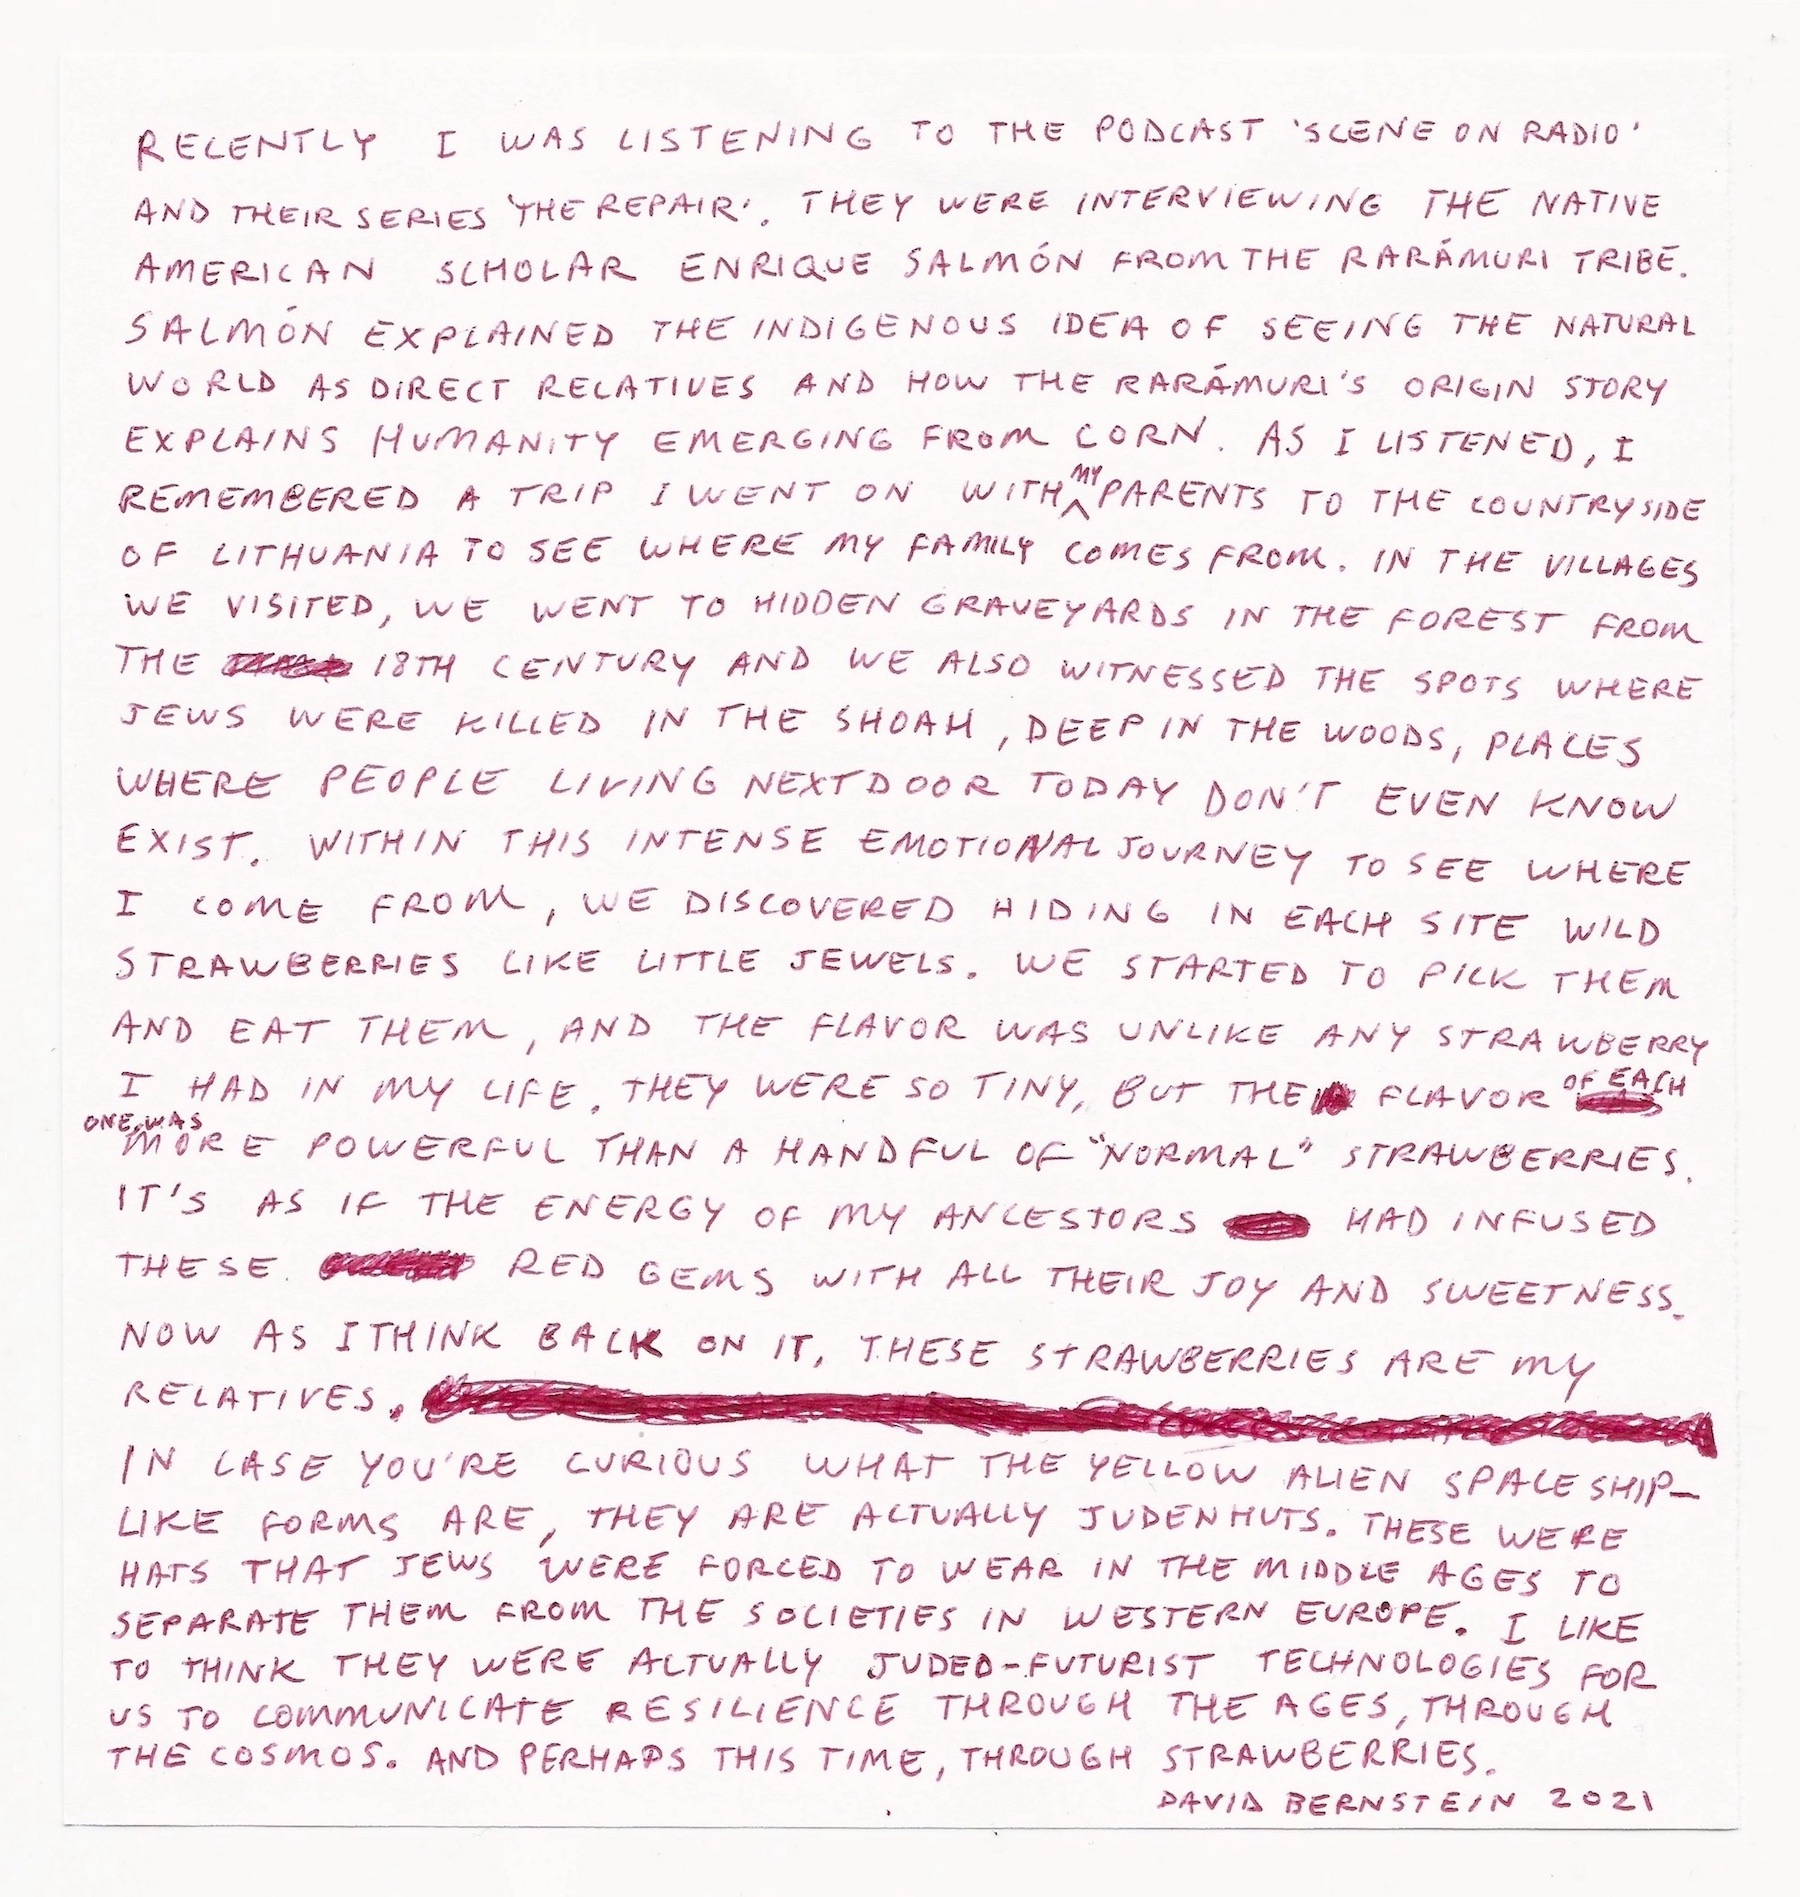 RECENTLY I WAS LISTENING TO THE PODCAST 'SCENE ON RADIO'
AND THEIR SERIES 'THE REPAIR'. THEY WERE INTERVIEWING THE NATIVE
AMERICAN SCHOLAR ENRIQUE SALMÓN FROM THE RARÁMURI TRIBE.
SALMÓN EXPLAINED THE INDIGENOUS IDEA OF SEEING THE NATURAL
WORLD AS DIRECT RELATIVES AND HOW THE RARÁMURI'S ORIGIN STORY
EXPLAINS HUMANITY EMERGING FROM CORN. AS I LISTENED, I
REMEMBERED A TRIP I WENT ON WITH MY PARENTS TO THE COUNTRYSIDE
OF LITHUANIA TO SEE WHERE MY FAMILY COMES FROM. IN THE VILLAGES
WE VISITED, WE WENT TO HIDDEN GRAVEYARDS IN THE FOREST FROM
THE 18TH CENTURY AND WE ALSO WITNESSED THE SPOTS WHERE
JEWS WERE KILLED IN THE SHOAH, DEEP IN THE WOODS, PLACES
WHERE PEOPLE LIVING NEXTDOOR TODAY DON'T EVEN KNOW
EXIST. WITHIN THIS INTENSE EMOTIONAL JOURNEY TO SEE WHERE
I COME FROM, WE DISCOVERED HIDING IN EACH SITE WILD
STRAWBERRIES LIKE LITTLE JEWELS. WE STARTED TO PICK THEM
AND EAT THEM, AND THE FLAVOR WAS UNLIKE ANY STRAWBERRY
I HAD IN MY LIFE. THEY WERE SO TINY, BUT THE FLAVOR OF EACH
ONE WAS MORE POWERFUL THAN A HANDFUL OF "NORMAL" STRAWBERRIES.
IT'S AS IF THE ENERGY OF MY ANCESTORS HAD INFUSED
THESE RED GEMS WITH ALL THEIR JOY AND SWEETNESS.
NOW AS I THINK BACK ON IT, THESE STRAWBERRIES ARE MY
RELATIVES.
IN CASE YOU'RE CURIOUS WHAT THE YELLOW ALIEN SPACESHIP-
LIKE FORMS ARE, THEY ARE ACTUALLY JUDENHUTS. THESE WERE
HATS THAT JEWS WERE FORCED TO WEAR IN THE MIDDLE AGES TO
SEPARATE THEM FROM THE SOCIETIES IN WESTERN EUROPE. I LIKE
TO THINK THEY WERE ACTUALLY JUDEO-FUTURIST TECHNOLOGIES FOR
US TO COMMUNICATE RESILIENCE THROUGH THE AGES, THROUGH
THE COSMOS. AND PERHAPS THIS TIME, THROUGH STRAWBERRIES.
DAVID BERNSTEIN 2021